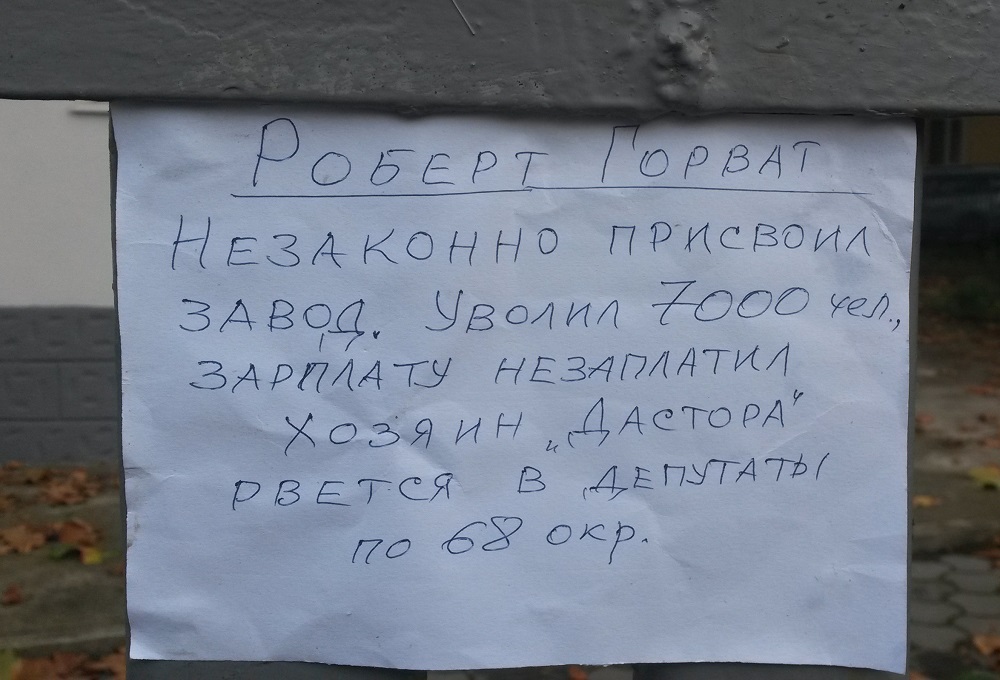 Роберт Горват
Незаконно присвоил
завод. Уволил 7000 чел.,
зарплату незаплатил
хозяин „Дастора“
рвется в депутаты
по 68 окр.